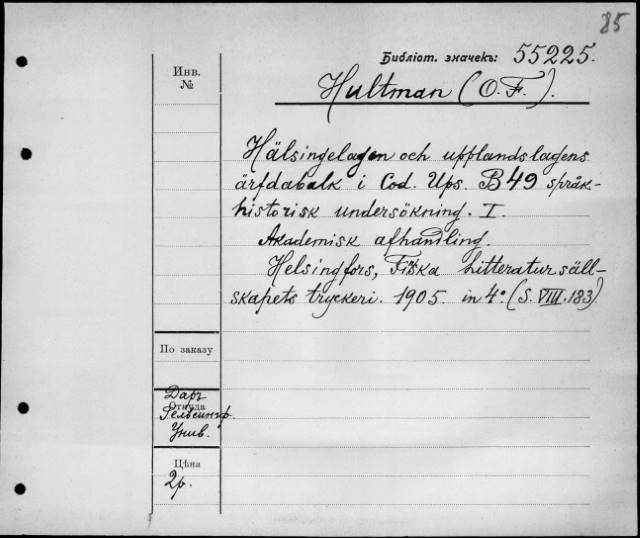 85
Библіот. значекъ: 55225.
Hultman (O. F.).
Инв.
№
Hälsingelagen och upplandslagens
ärfdabalk i Cod. Ups. B49 språk-
historisk undersökning. I.
Akademisk afhandling.
Helsingfors, Finska Litteratursäll-
skapets tryckeri. 1905. in 4° (S. VIII. 183)
По заказу
Даръ
Откуда
Гельсингф.
Унив.
Цѣна
2р.